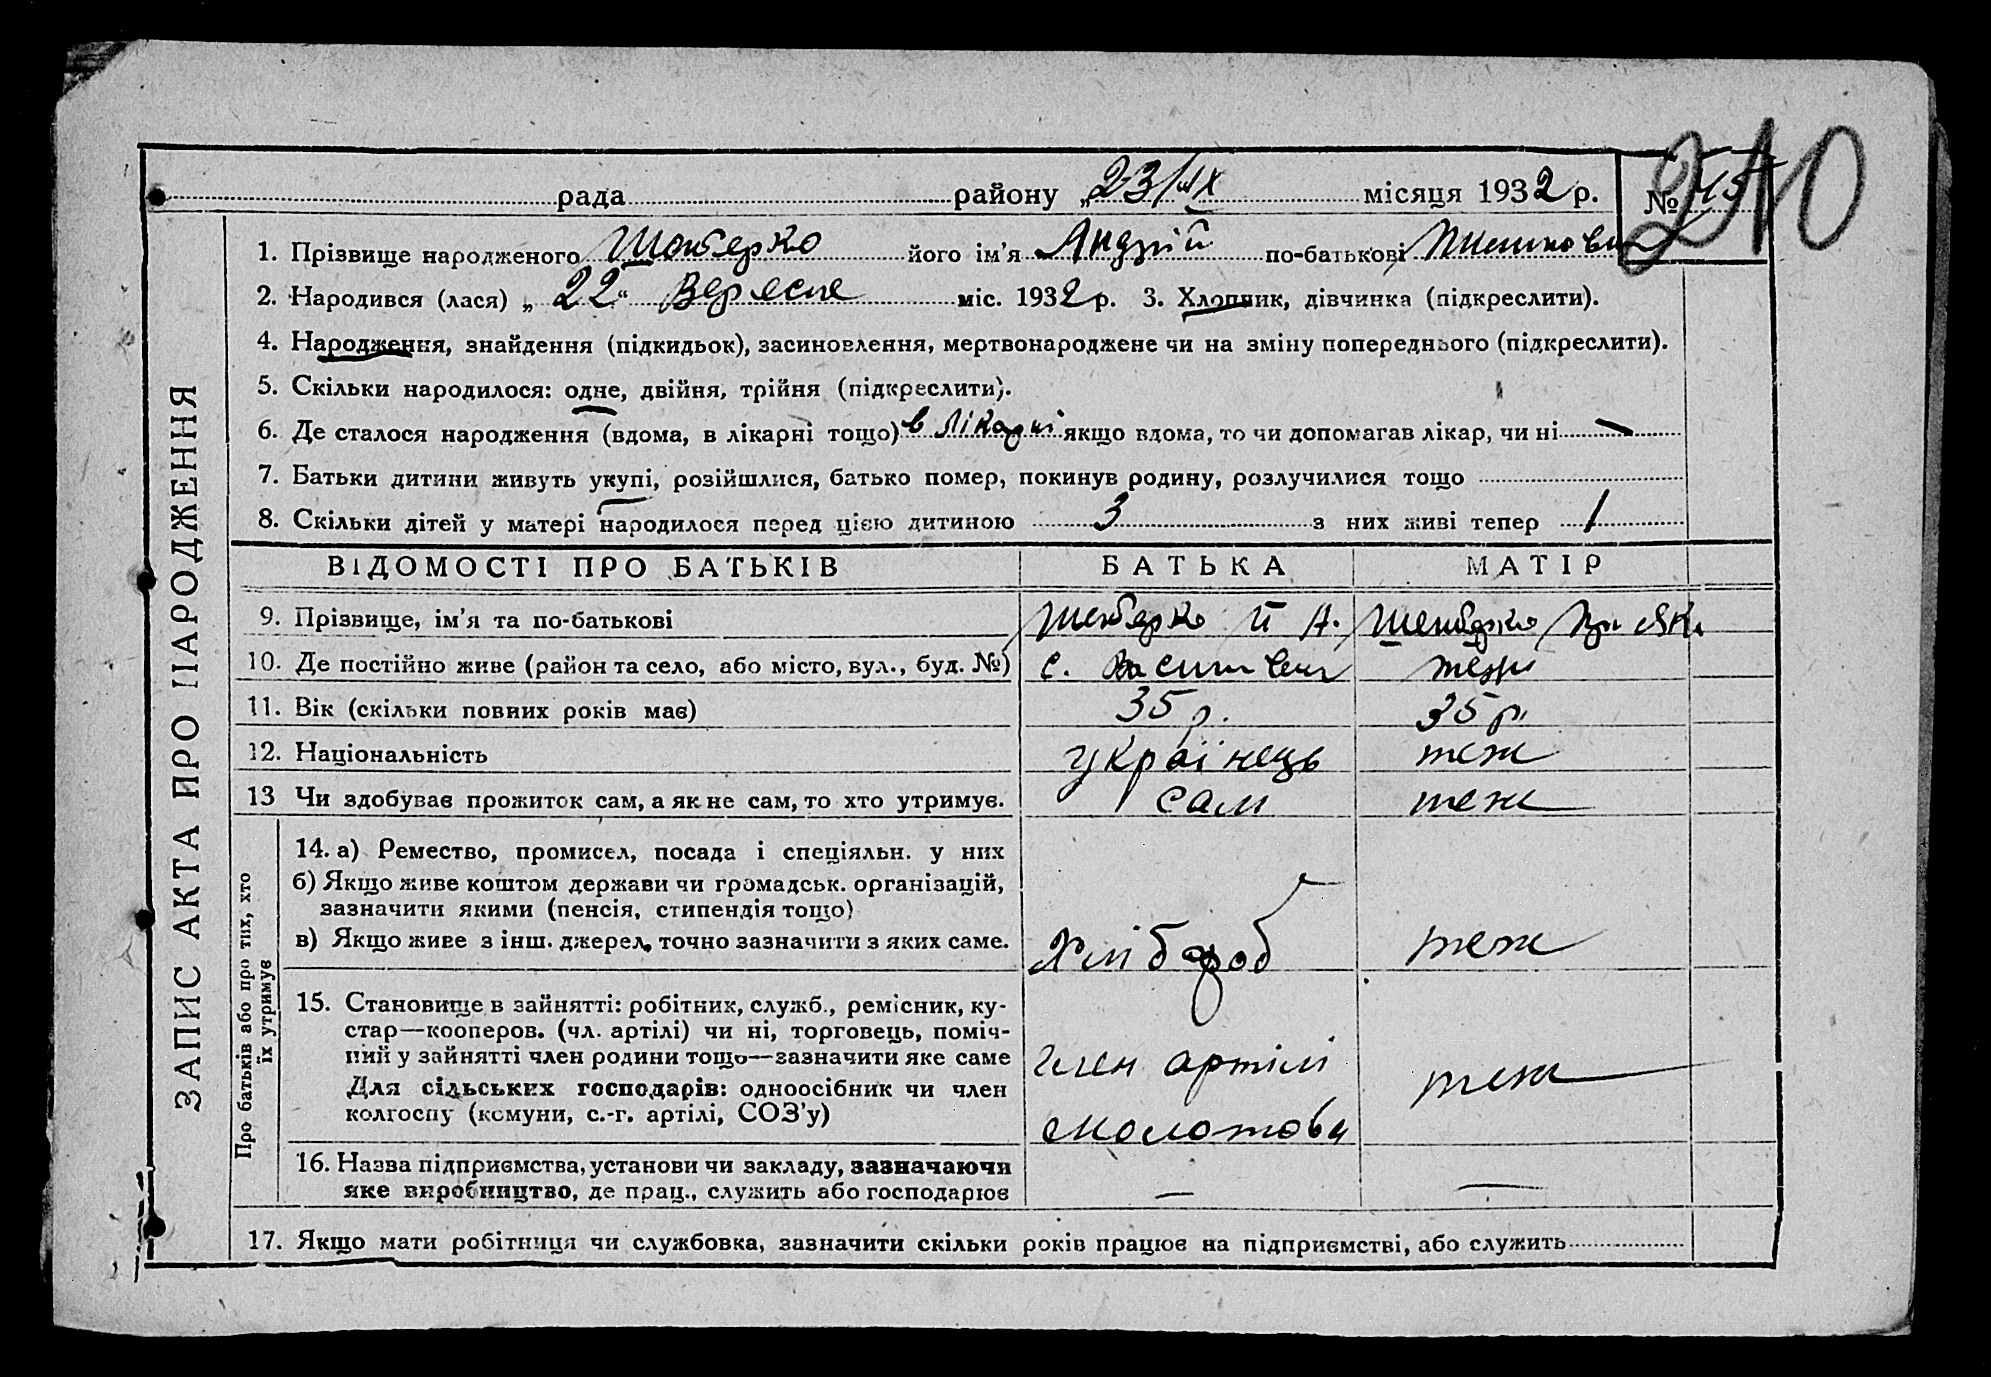 210
рада районУ „23/IX місяця 1932 р. № 45
1. Прізвище народженого його ім'я Андрій по-батькові
2. Народився (лася) „22“ Вересня міс. 1932 р. 3. Хлопчик, дівчинка (підкреслити).
4. Народження, знайдення (підкидьок), засиновлення, мертвонароджене чи на зміну попереднього (підкреслити).
5. Скільки народилося: одне, двійня, трійня (підкреслити).
6. Де сталося народження (вдома, в лікарні тощо) в лікарні якщо вдома, то чи допомагав лікар, чи ні —
7. Батьки дитини живуть укупі, розійшлися, батько помер, покинув родину, розлучилися тощо
8. Скільки дітей у матері народилося перед цією дитиною 3 з них живі тепер 1
ЗАПИС АКТА ПРО НАРОДЖЕННЯ
ВІДОМОСТІ ПРО БАТЬКІВ БАТЬКА МАТІР
9. Прізвище, ім'я та по-батькові
10. Де постійно живе (район та село, або місто, вул., буд. №) с. теж
11. Вік (скільки повних років має) 35 р. 35 р.
12. Національність українець теж
13 Чи здобуває прожиток сам, а як не сам, то хто утримує. сам теж
Про батьків або про тих, хто
їх утримує
14. а) Ремество, промисел, посада і спеціяльн. у них
б) Якщо живе коштом держави чи громадськ. організацій,
зазначити якими (пенсія, стипендія тощо)
в) Якщо живе з інш. джерел, точно зазначити з яких саме. Хлібороб теж
15. Становище в зайнятті: робітник, служб., ремісник, ку-
стар—кооперов. (чл. артілі) чи ні, торговець, поміч-
ний у зайнятті член родини тощо—зазначити яке саме член артілі теж
Для сільських господарів: одноосібник чи член
колгоспу (комуни, с.-г. артілі, СОЗ'у) Молотова
16. Назва підприємства, установи чи закладу, зазначаючи
яке виробництво, де прац., служить або господарює — —
17. Якщо мати робітниця чи службовка, зазначити скільки років працює на підприємстві, або служить